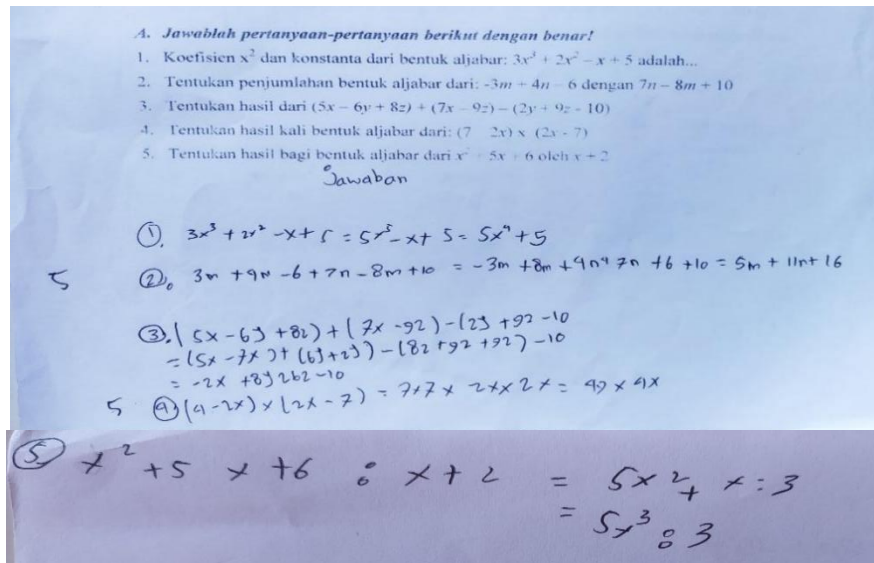 A. Jawablah pertanyaan-pertanyaan berikut dengan benar!
1. Koefisien x² dan konstanta dari bentuk aljabar: 3x³ + 2x² – x + 5 adalah...
2. Tentukan penjumlahan bentuk aljabar dari: -3m + 4n – 6 dengan 7n – 8m + 10
3. Tentukan hasil dari (5x – 6y + 8z) + (7x – 9z) – (2y + 9z - 10)
4. Tentukan hasil kali bentuk aljabar dari: (7 2x) x (2x - 7)
5. Tentukan hasil bagi bentuk aljabar dari x² + 5x + 6 oleh x + 2
Jawaban
①. 3x³ + 2x² -x + 5 = 5x⁵ - x + 5 = 5x⁴ + 5
5 ②. 3m + 4n - 6 + 7n - 8m + 10 = -3m + 8m + 4n + 7n + 6 + 10 = 5m + 11n + 16
③. (5x - 6y + 8z) + (7x - 9z) - (2y + 9z - 10
= (5x - 7x) + (6y + 2y) - (8z + 9z + 9z) - 10
= -2x + 8y 26z - 10
5 ④ (4 - 2x) x (2x - 7) = 7 x 7 x 2x x 2x = 49 x 4x
⑤ x² + 5 x + 6 : x + 2 = 5x² + x : 3
= 5x³ : 3